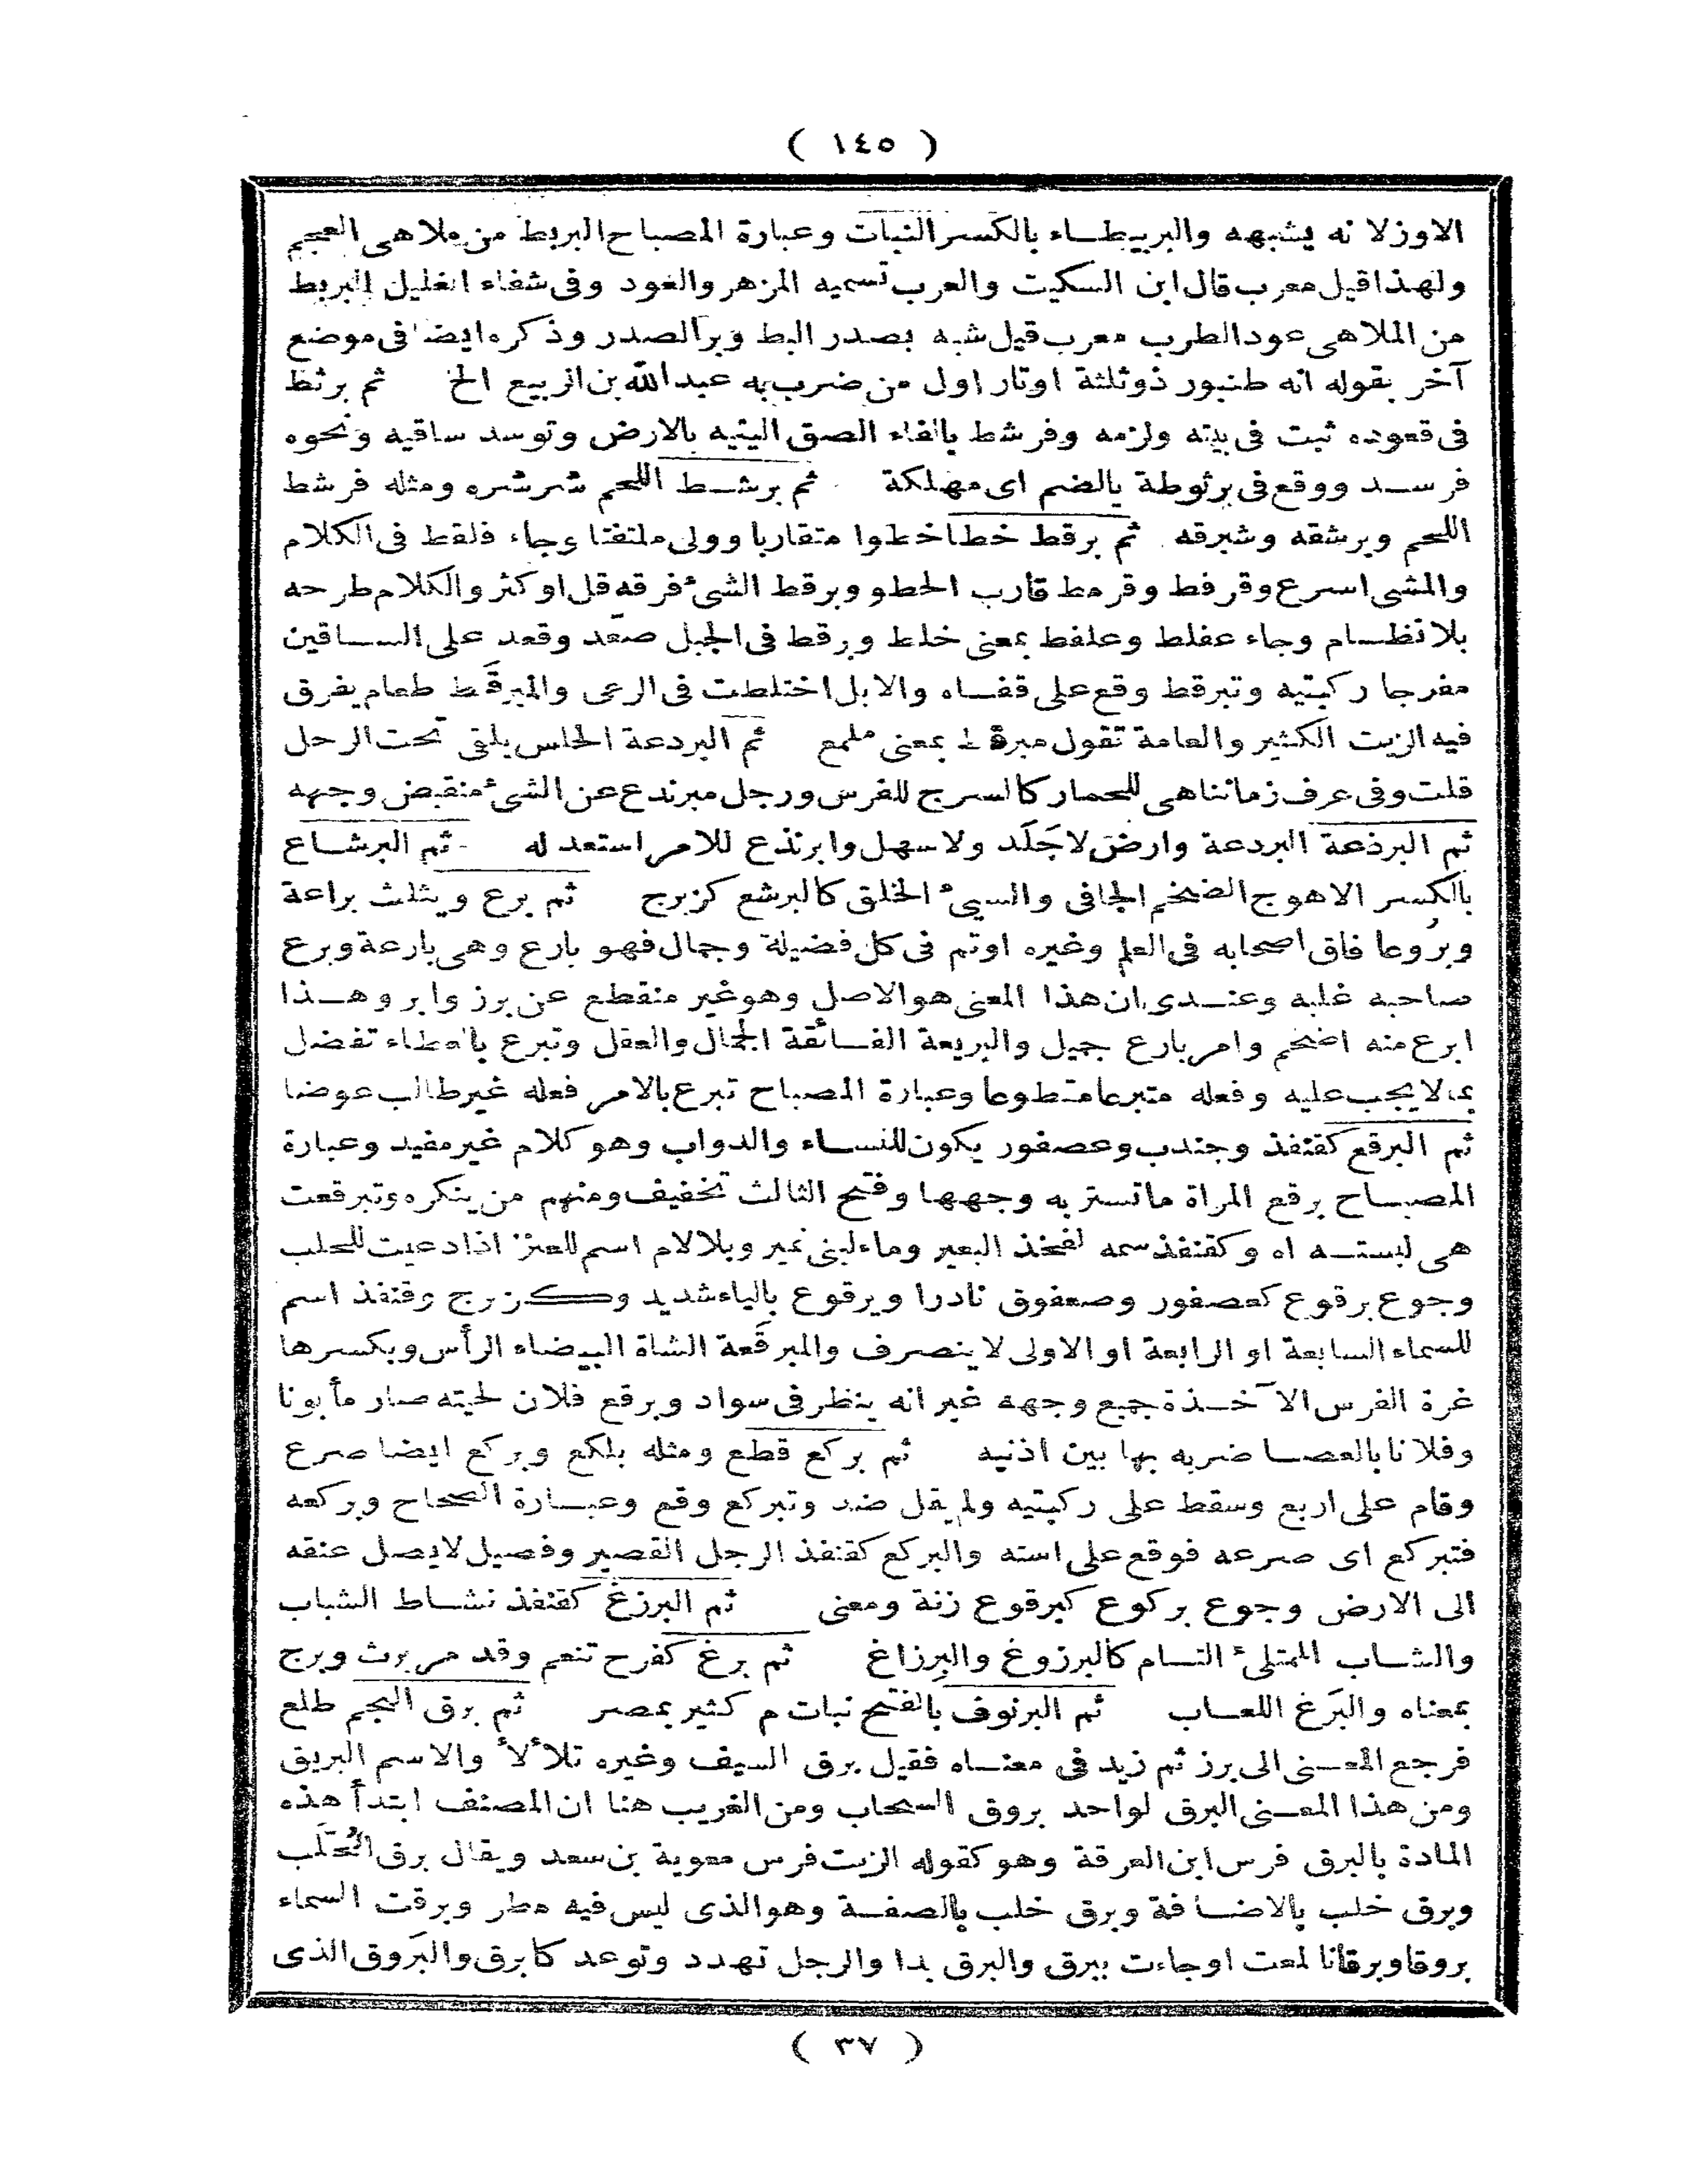 ( ١٤٥ )
الاوز لانه يشبهه والبربيطاء بالكسر النبات وعبارة المصباح البربط من ملاهى العجم
ولهذا قيل معرب قال ابن السكيت والعرب تسميه المزهر والعود وفى شفاء الغليل البربط
من الملاهى عود الطرب معرب قيل شبه بصدر البط وبر الصدر وذكره ايضا فى موضع
آخر بقوله انه طنبور ذو ثلثة اوتار اول من ضرب به عبد الله بن الربيع الخ ثم برثط
فى قعوده ثبت فى بيته ولزمه وفرشط بالفاء الصق اليتيه بالارض وتوسد ساقيه ونحوه
فرسد ووقع فى برثوطة بالضم اى مهلكة ثم برشط اللحم شرشره ومثله فرشط
اللحم وبرشقه وشبرقه ثم برقط خطا خطوا متقاربا وولى ملتفتا وجاء فلقط فى الكلام
والمشى اسرع وقرفط وقرمط قارب الخطو وبرقط الشىء فرقه قل او كثر والكلام طرحه
بلا نظام وجاء عفلط وعلفط بمعنى خلط وبرقط فى الجبل صعّد وقعد على الساقين
مفرجا ركبتيه وتبرقط وقع على قفاه والابل اختلطت فى الرعى والمبرقَط طعام يفرق
فيه الزيت الكثير والعامة تقول مبرقط بمعنى ملمع ثم البردعة الحلس يلقى تحت الرحل
قلت وفى عرف زماننا هى للحمار كالسرج للفرس ورجل مبرندع عن الشىء منقبض وجهه
ثم البرذعة البردعة وارض لا جَلَد ولا سهل وابرنذع للامر استعد له ثم البرشاع
بالكسر الاهوج الضخم الجافى والسيئ الخلق كالبرشع كزبرج ثم برع ويثلث براعة
وبُروعا فاق اصحابه فى العلم وغيره او تم فى كل فضيلة وجمال فهو بارع وهى بارعة وبرع
صاحبه غلبه وعندى ان هذا المعنى هو الاصل وهو غير منقطع عن برز وابر وهذا
ابرع منه اضخم وامر بارع جميل والبريعة الفائقة الجمال والعقل وتبرع بالعطاء تفضل
بما لا يجب عليه وفعله متبرعا متطوعا وعبارة المصباح تبرع بالامر فعله غير طالب عوضا
ثم البرقع كقنفذ وجندب وعصفور يكون للنساء والدواب وهو كلام غير مفيد وعبارة
المصباح برقع المراة ما تستتر به وجهها وفتح الثالث تخفيف ومنهم من ينكره وتبرقعت
هى لبسته اه وكقنفذ سمه لفخذ البعير وماء لبنى نمير وبلا لام اسم للعنز اذا دعيت للحلب
وجوع برقوع كعصفور وصعفوق نادرا ويرقوع بالياء شديد وكزبرج وقنفذ اسم
للسماء السابعة او الرابعة او الاولى لا ينصرف والمبرقَعة الشاة البيضاء الرأس وبكسرها
غرة الفرس الآخذة جميع وجهه غير انه ينظر فى سواد وبرقع فلان لحيته صار مأبونا
وفلانا بالعصا ضربه بها بين اذنيه ثم بركع قطع ومثله بلكع وبركع ايضا صرع
وقام على اربع وسقط على ركبتيه ولم يقل ضد وتبركع وقع وعبارة الصحاح وبركعه
فتبركع اى صرعه فوقع على استه والبركع كقنفذ الرجل القصير وفصيل لا يصل عنقه
الى الارض وجوع بركوع كبرقوع زنة ومعنى ثم البرزغ كقنفذ نشاط الشباب
والشاب الممتلئ التام كالبرزوغ والبِرزاغ ثم برغ كفرح تنعم وقد مر برث وبرج
بمعناه والبَرغ اللعاب ثم البرنوف بالفتح نبات م كثير بمصر ثم برق النجم طلع
فرجع المعنى الى برز ثم زيد فى معناه فقيل برق السيف وغيره تلألأ والاسم البريق
ومن هذا المعنى البرق لواحد بروق السحاب ومن الغريب هنا ان المصنف ابتدأ هذه
المادة بالبرق فرس ابن العرقة وهو كقوله الزيت فرس معوية بن سعد ويقال برق الخُلَّب
وبرق خلب بالاضافة وبرق خلب بالصفة وهو الذى ليس فيه مطر وبرقت السماء
بروقا وبرقانا لمعت او جاءت ببرق والبرق بدا والرجل تهدد وتوعد كابرق والبَروق الذى
( ٣٧ )